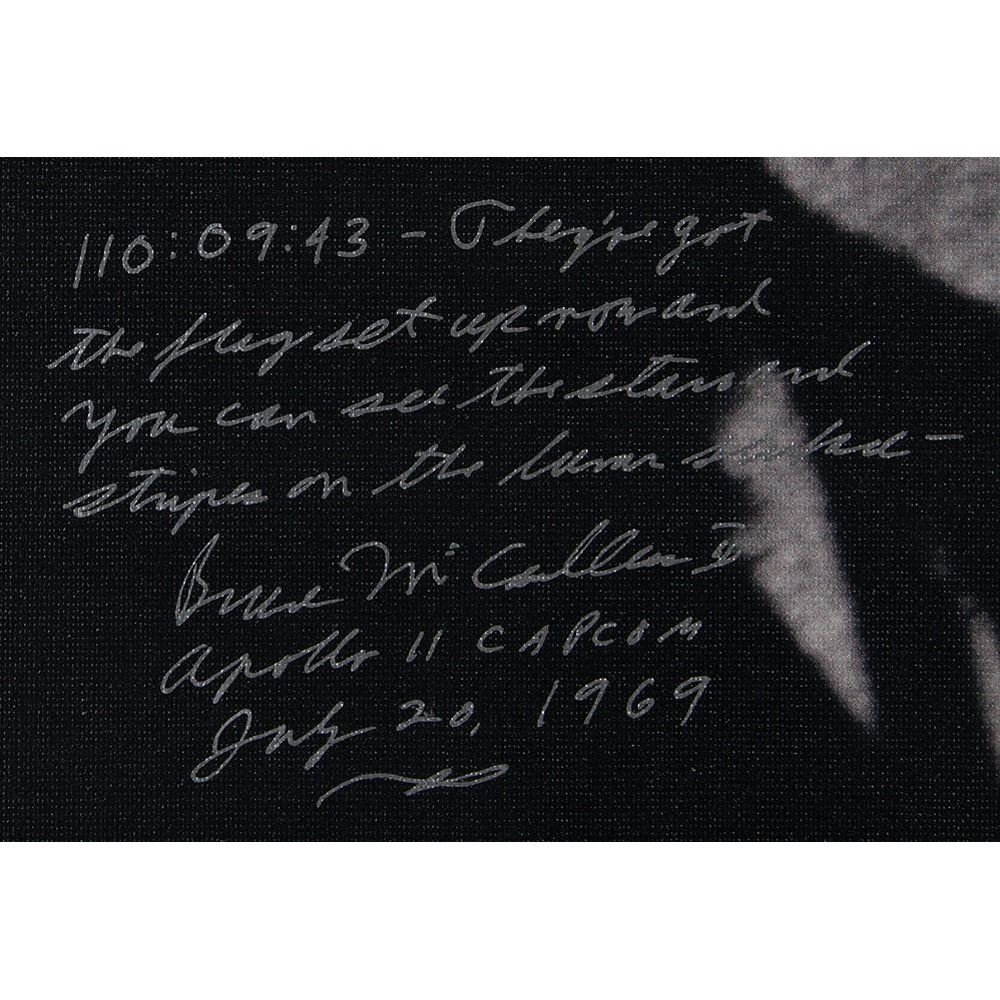 110:09:43 - They've got
the flag set up now and
you can see the stars and
stripes on the lunar
Bruce McCandless II
Apollo 11 CAPCOM
July 20, 1969